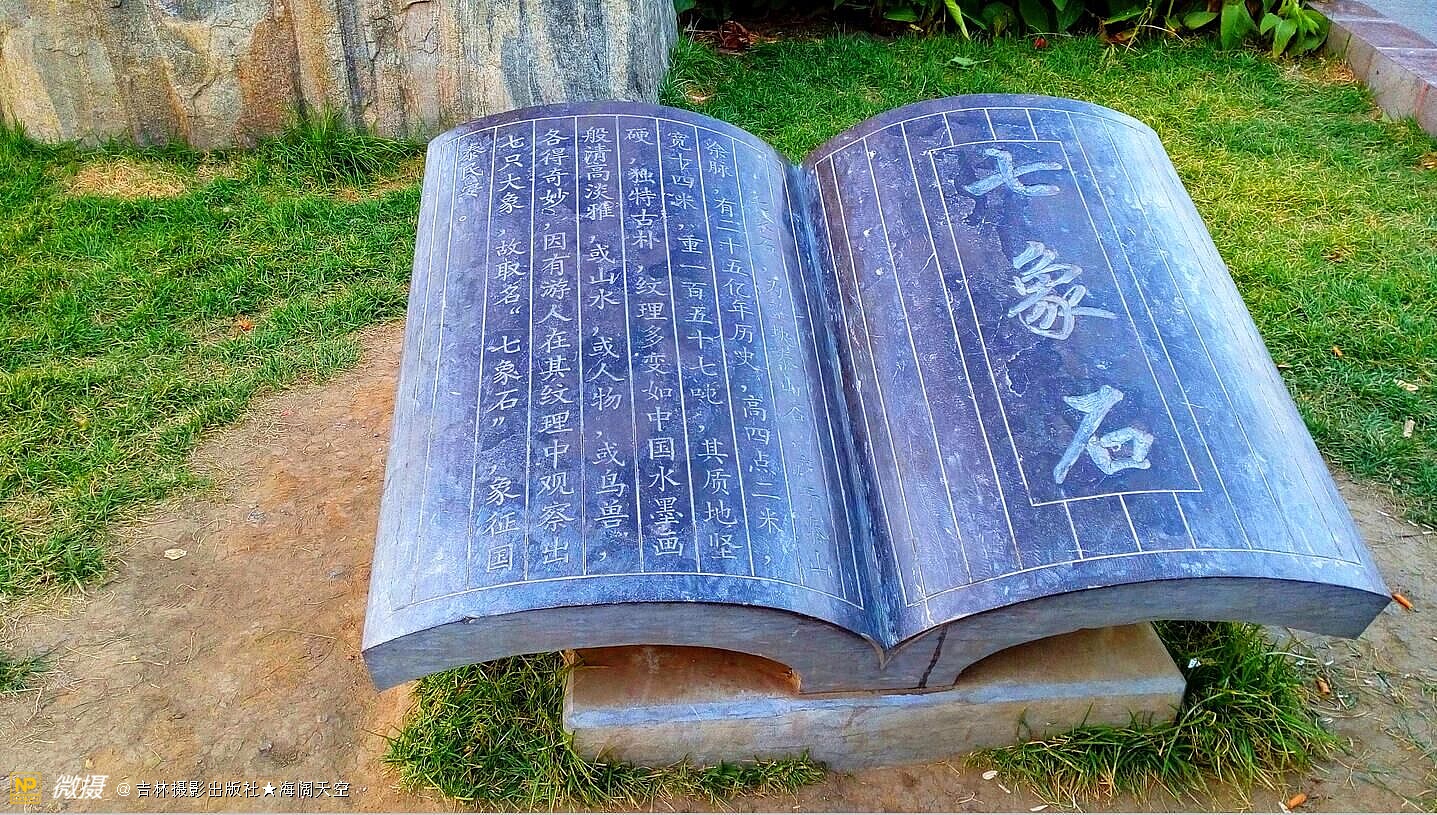 七象石
为一块泰山石，
泰山
余脉，有二十五亿年历史，高四点二米，
宽十四米，重一百五十七吨，其质地坚
硬，独特古朴，纹理多变如中国水墨画
般清高淡雅，或山水，或人物，或鸟兽，
各得奇妙，因有游人在其纹理中观察出
七只大象，故取名“七象石”，象征国
泰民安。
NP 微摄 @吉林摄影出版社★海阔天空